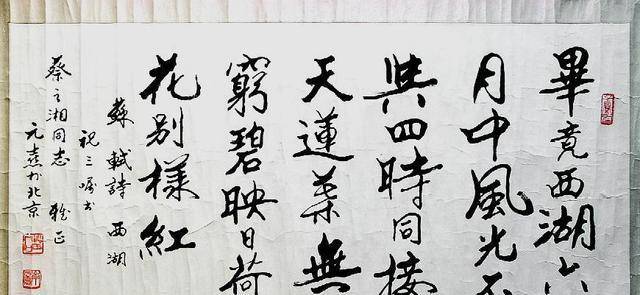 畢竟西湖六
月中風光不
與四時同接
天蓮葉無
窮碧映日荷
花别樣紅
蘇軾詩 西湖
祝三嘱书
蔡之湘同志 雅正
元熹於北京